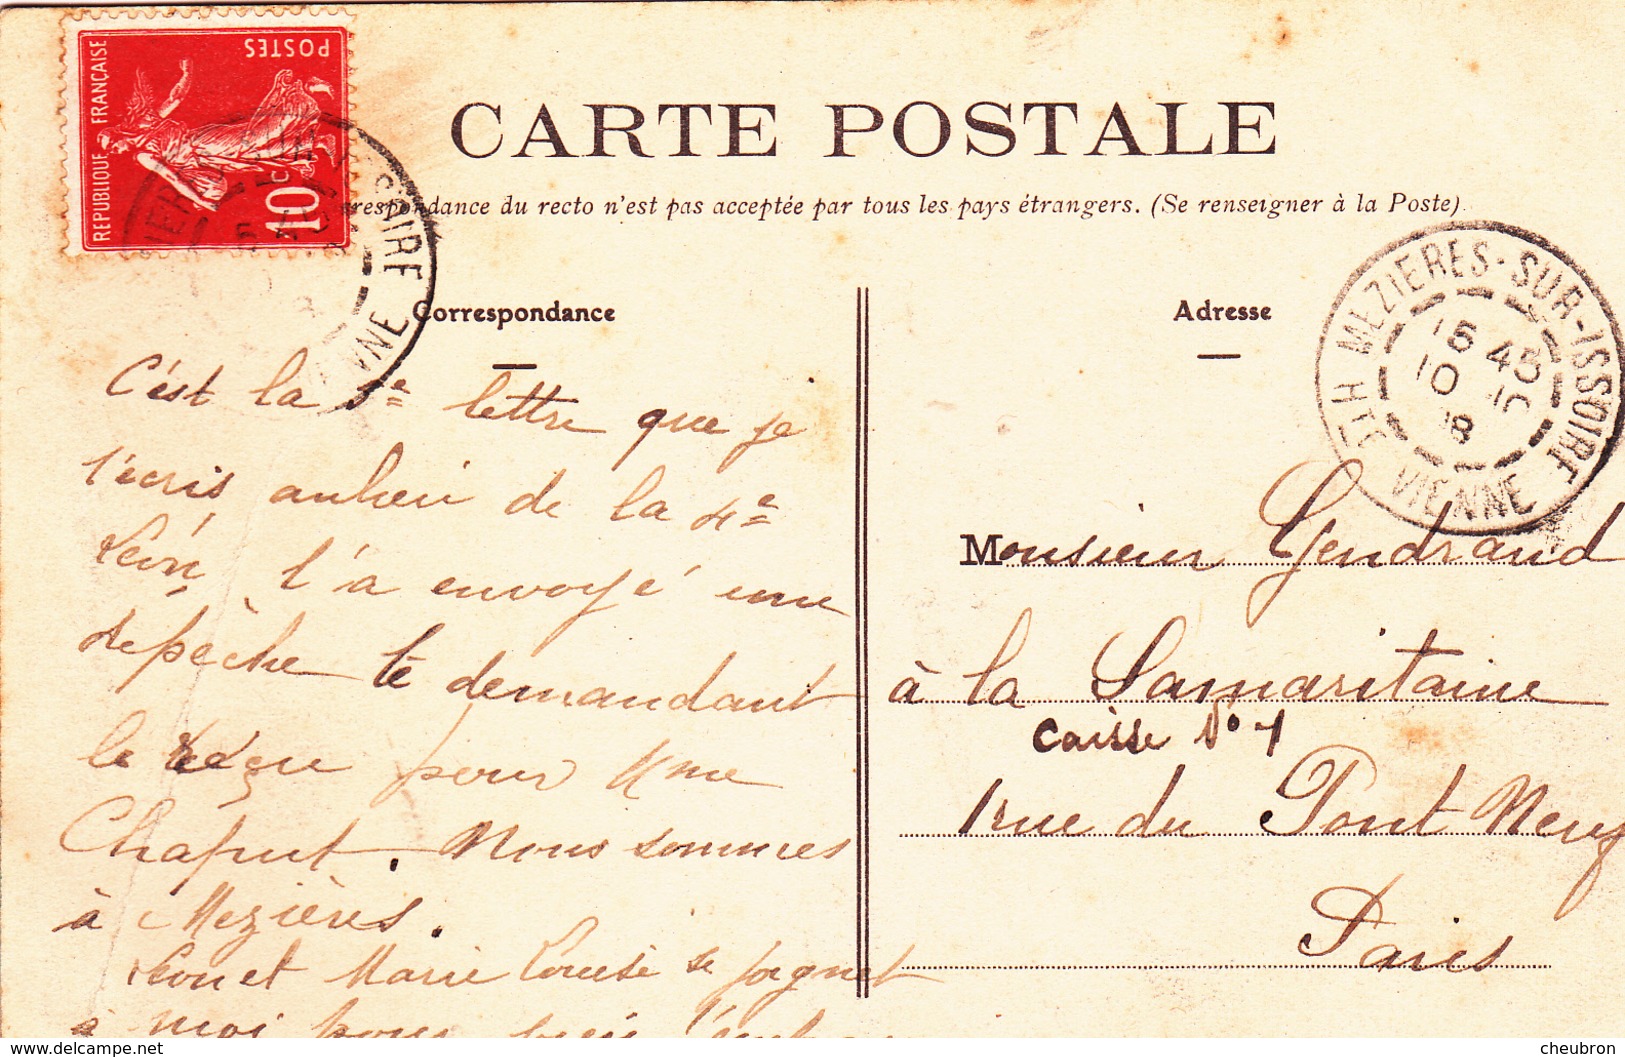 POSTES
REPUBLIQUE FRANÇAISE
10 C
CARTE POSTALE
respondance du recto n'est pas acceptée par tous les pays étrangers. (Se renseigner à la Poste).
Correspondance
Adresse
MEZIERES-SUR-ISSOIRE
15 45
10 10
8
HTE VIENNE
C'est la 5e lettre que je
t'écris au lieu de la 4e
Léon t'a envoyé une
dépêche te demandant
le reçu pour Mme
Chaput. Nous sommes
à Mezières.
Léon et Marie Louise se joignet
à moi pour
Monsieur Gendraud
à la Samaritaine
Caisse No 1
1 rue du Pont Neuf
Paris
https://www.delcampe.net
cheubron